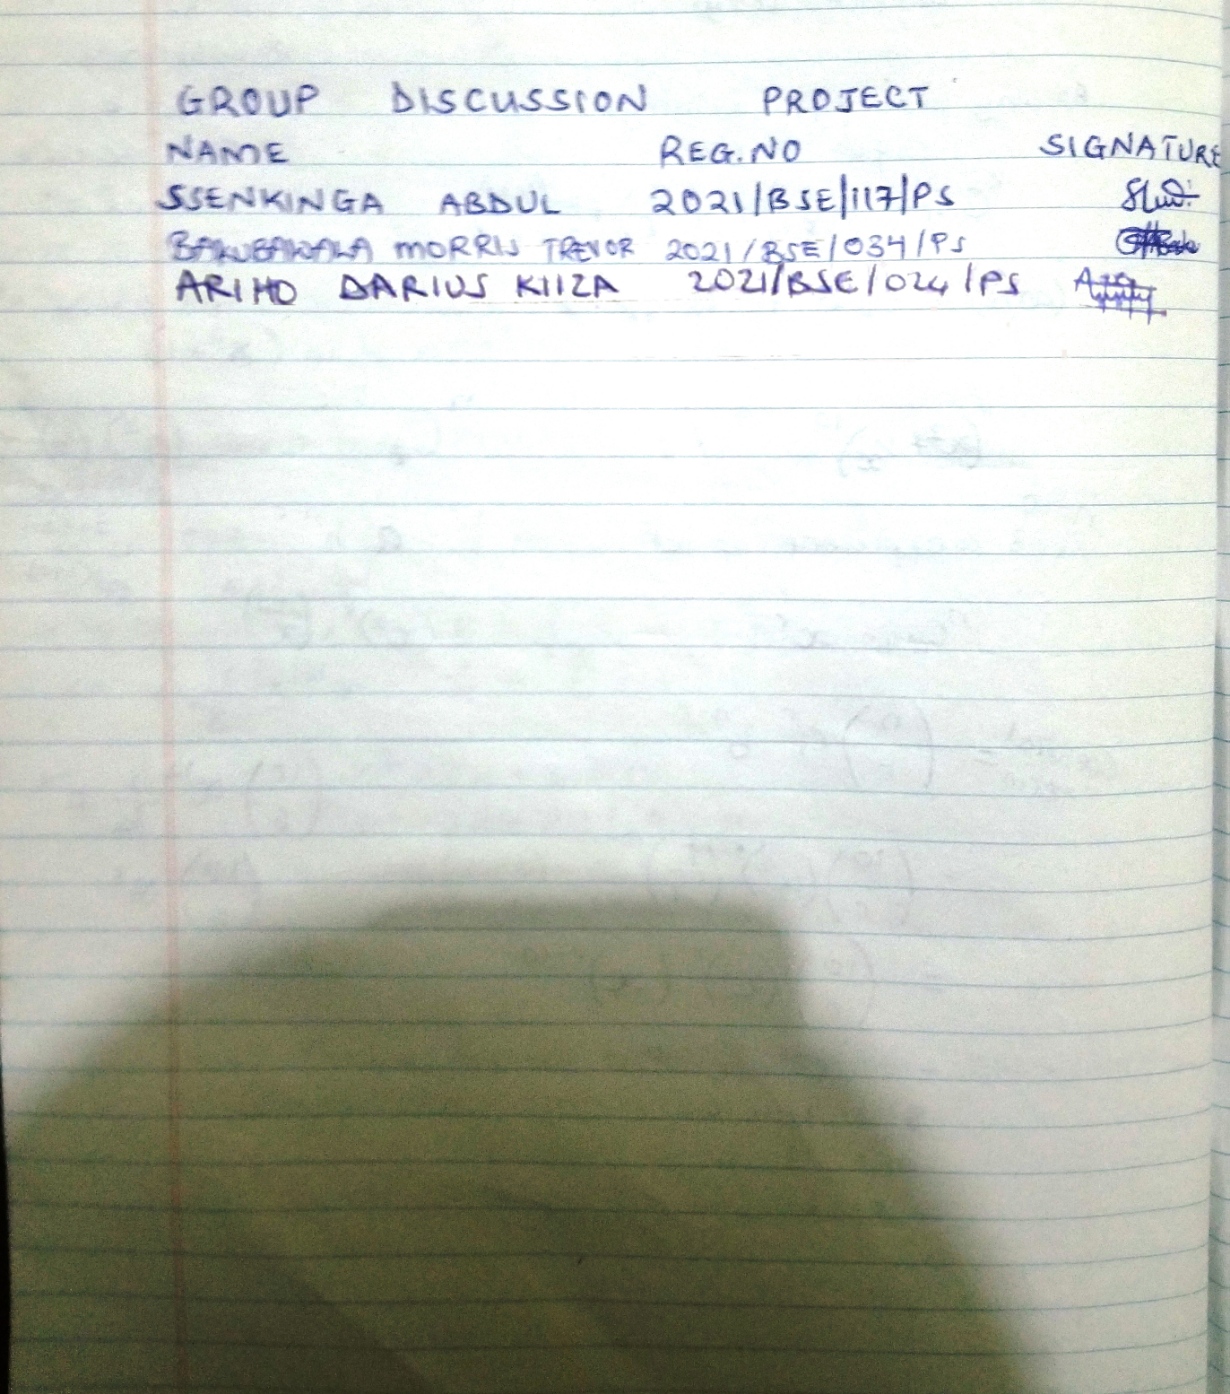 GROUP DISCUSSION PROJECT
NAME REG.NO SIGNATURE
SSENKINGA ABDUL 2021/BSE/117/PS
MORRIS TREVOR 2021/BSE/034/PS
ARIHO DARIUS KIIZA 2021/BSE/024/PS